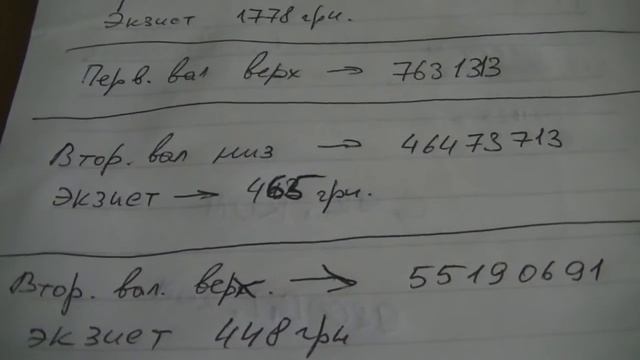 Экзист 1778 грн.
Перв. вал верх → 7631313
Втор. вал низ → 46473713
Экзист → 465 грн.
Втор. вал. верх. → 55190691
Экзист 448 грн